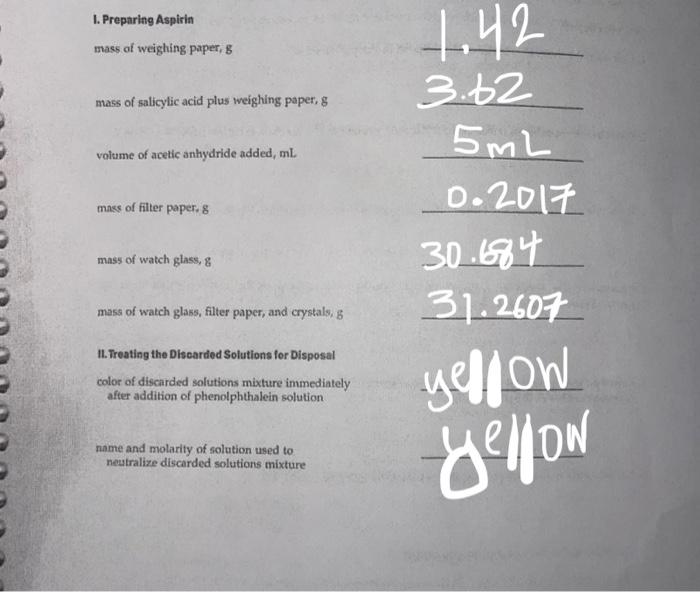 I. Preparing Aspirin
mass of weighing paper, g 1.42
mass of salicylic acid plus weighing paper, g 3.62
volume of acetic anhydride added, mL 5mL
mass of filter paper, g 0.2017
mass of watch glass, g 30.684
mass of watch glass, filter paper, and crystals, g 31.2607
II. Treating the Discarded Solutions for Disposal
color of discarded solutions mixture immediately yellow
after addition of phenolphthalein solution
name and molarity of solution used to yellow
neutralize discarded solutions mixture